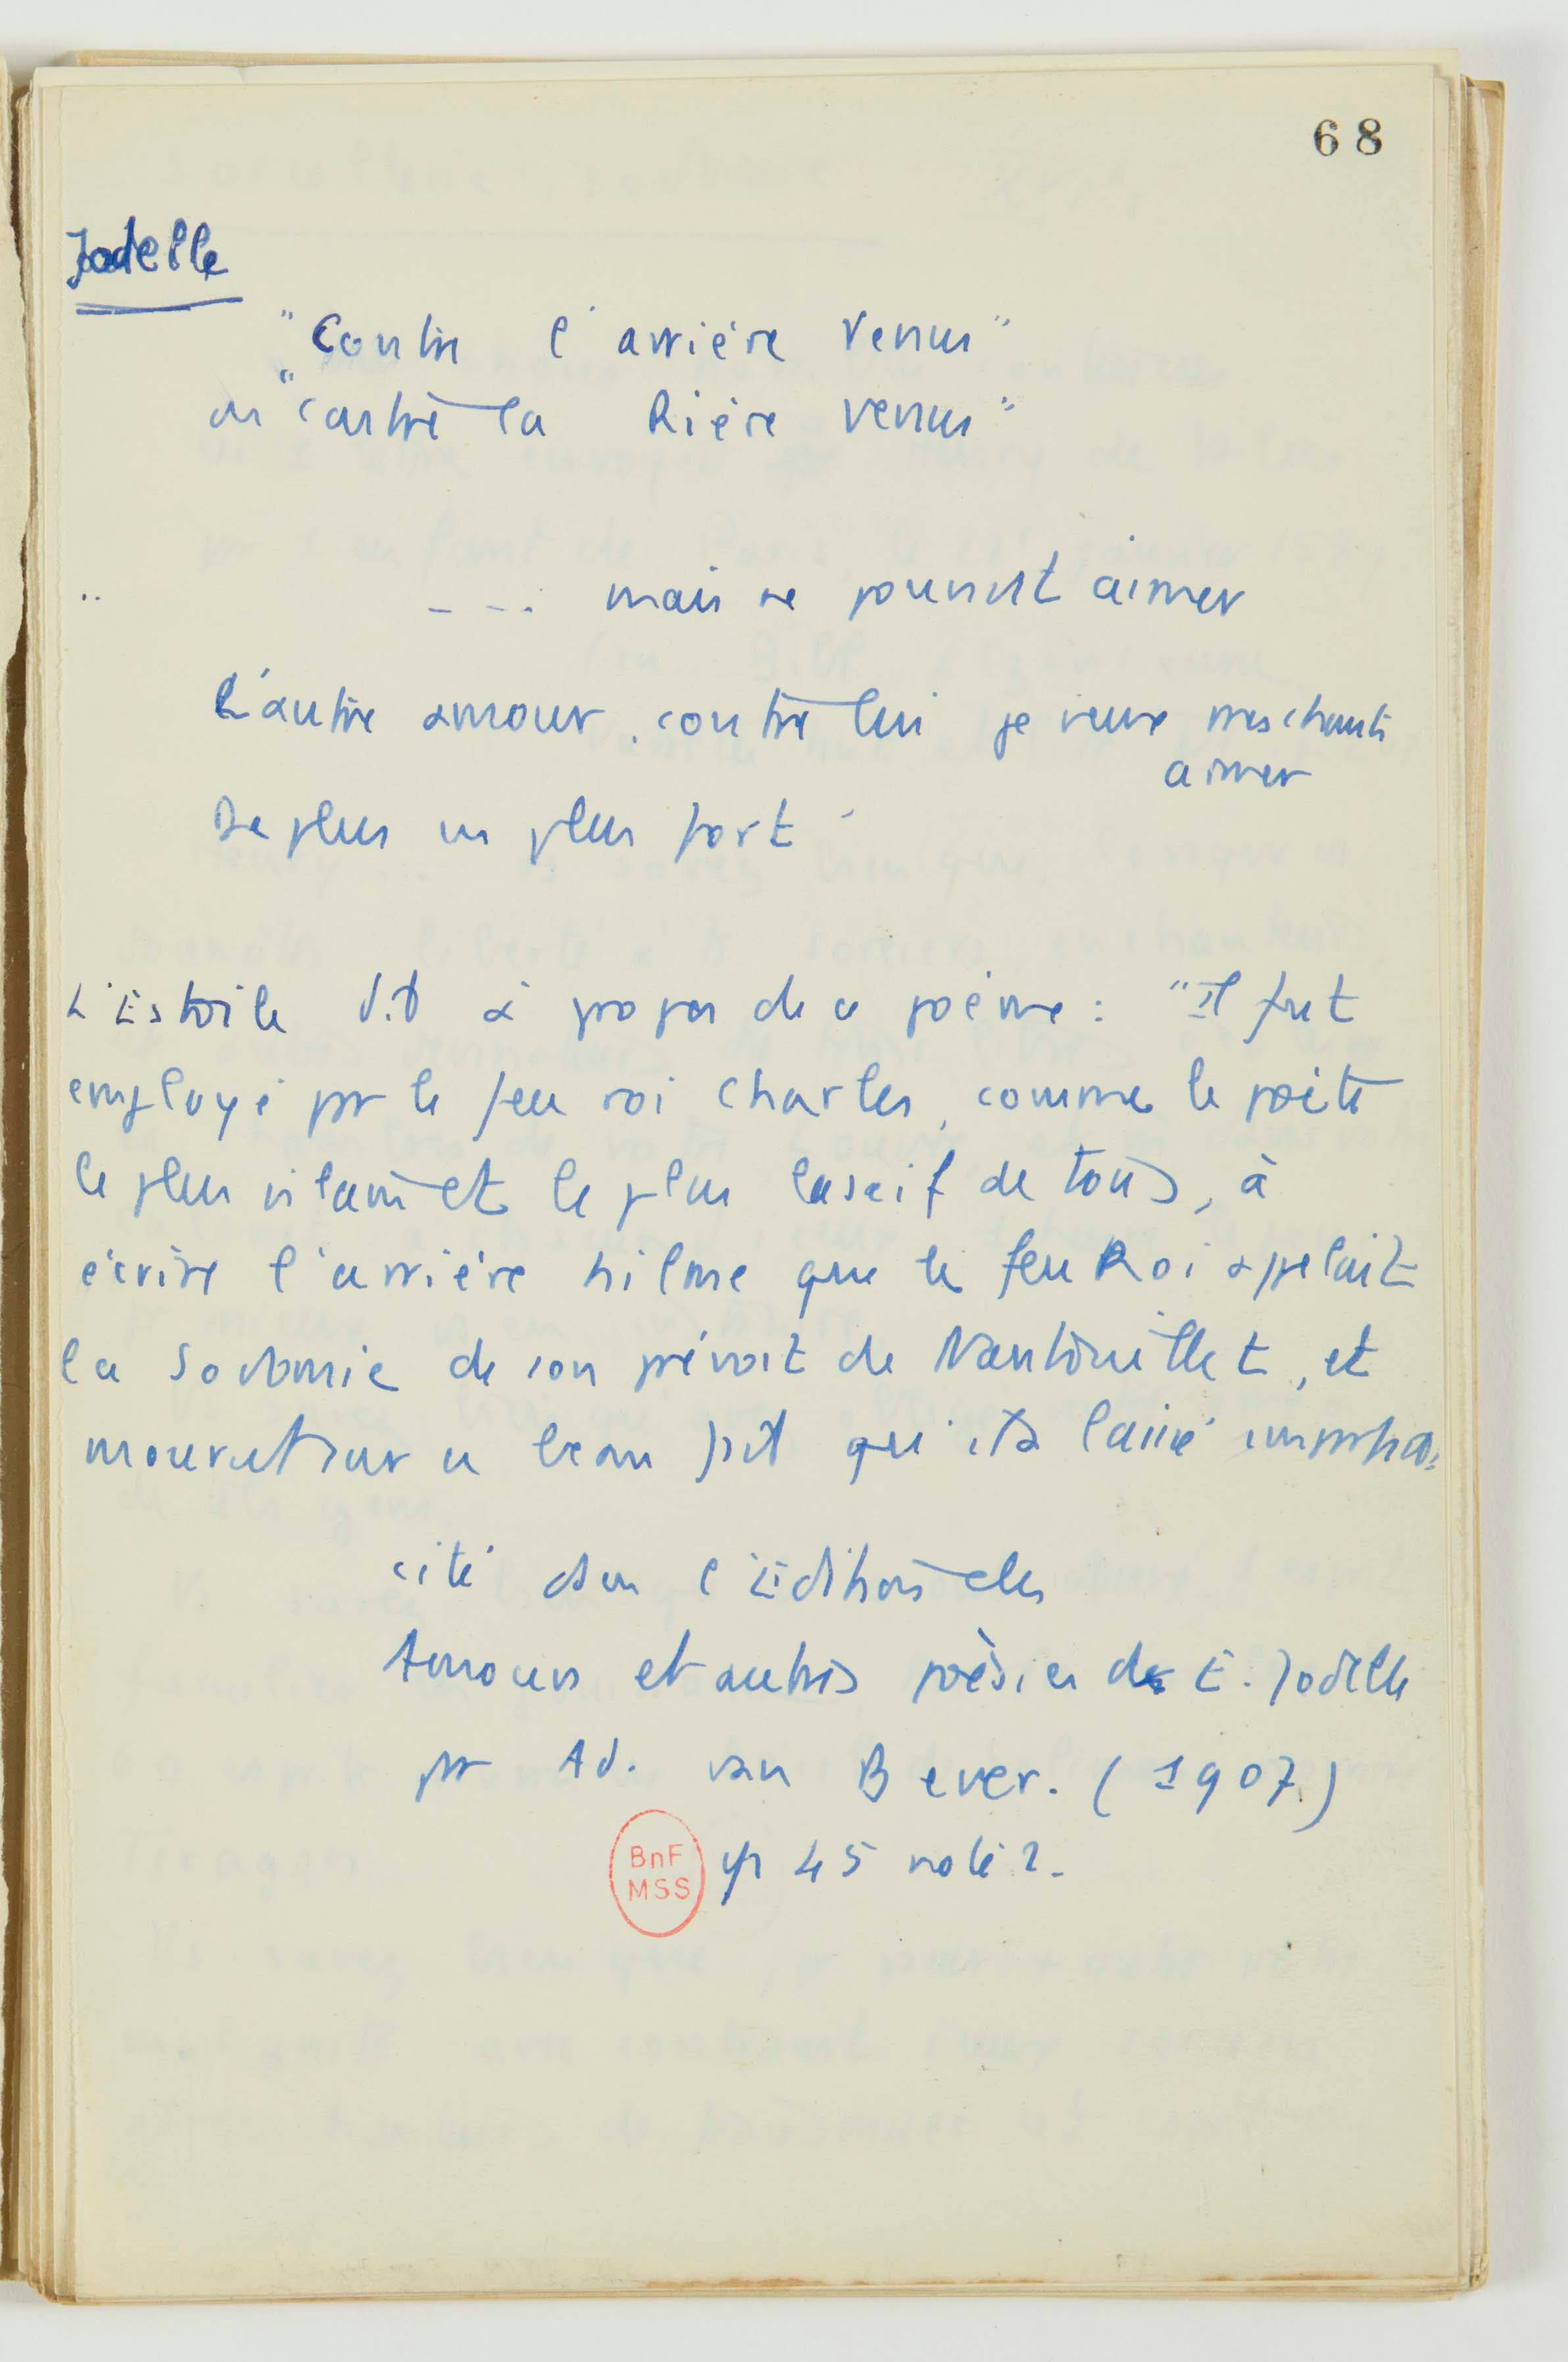 68
Jodelle
"Contre l'arrière Venus"
ou "contre la Rière Venus"
.. _ _ _ . mais ne pouvant aimer
L'autre amour, contre lui je veux meschants
aimer
De plus en plus fort"
L'Estoile dit à propos de ce poème : "Il fut
employé pr le feu roi Charles, comme le poète
le plus vilain et le plus lascif de tous, à
écrire l'arrière hilme que le feu Roi apelait
la Sodomie de son prévost de Nantouillet, et
mourut sur ce beau fait qu'il a laissé imparfa.
cité dans l'Edition des
Amours et autres poèsies de E. Jodelle
pr Ad. van Bever. (1907)
BnF
MSS
p 45 note 2.